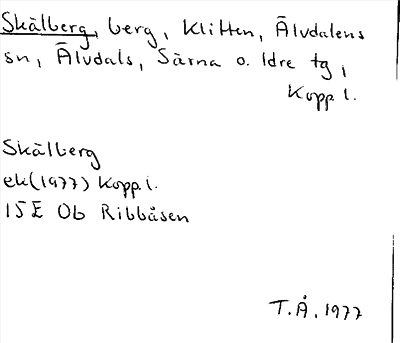 Skålberg, berg, Klitten, Älvdalens
sn, Älvdals, Särna o. Idre tg,
Kopp l.
Skålberg
ek(1977) Kopp l.
15E 0b Ribbåsen
T.Å. 1977